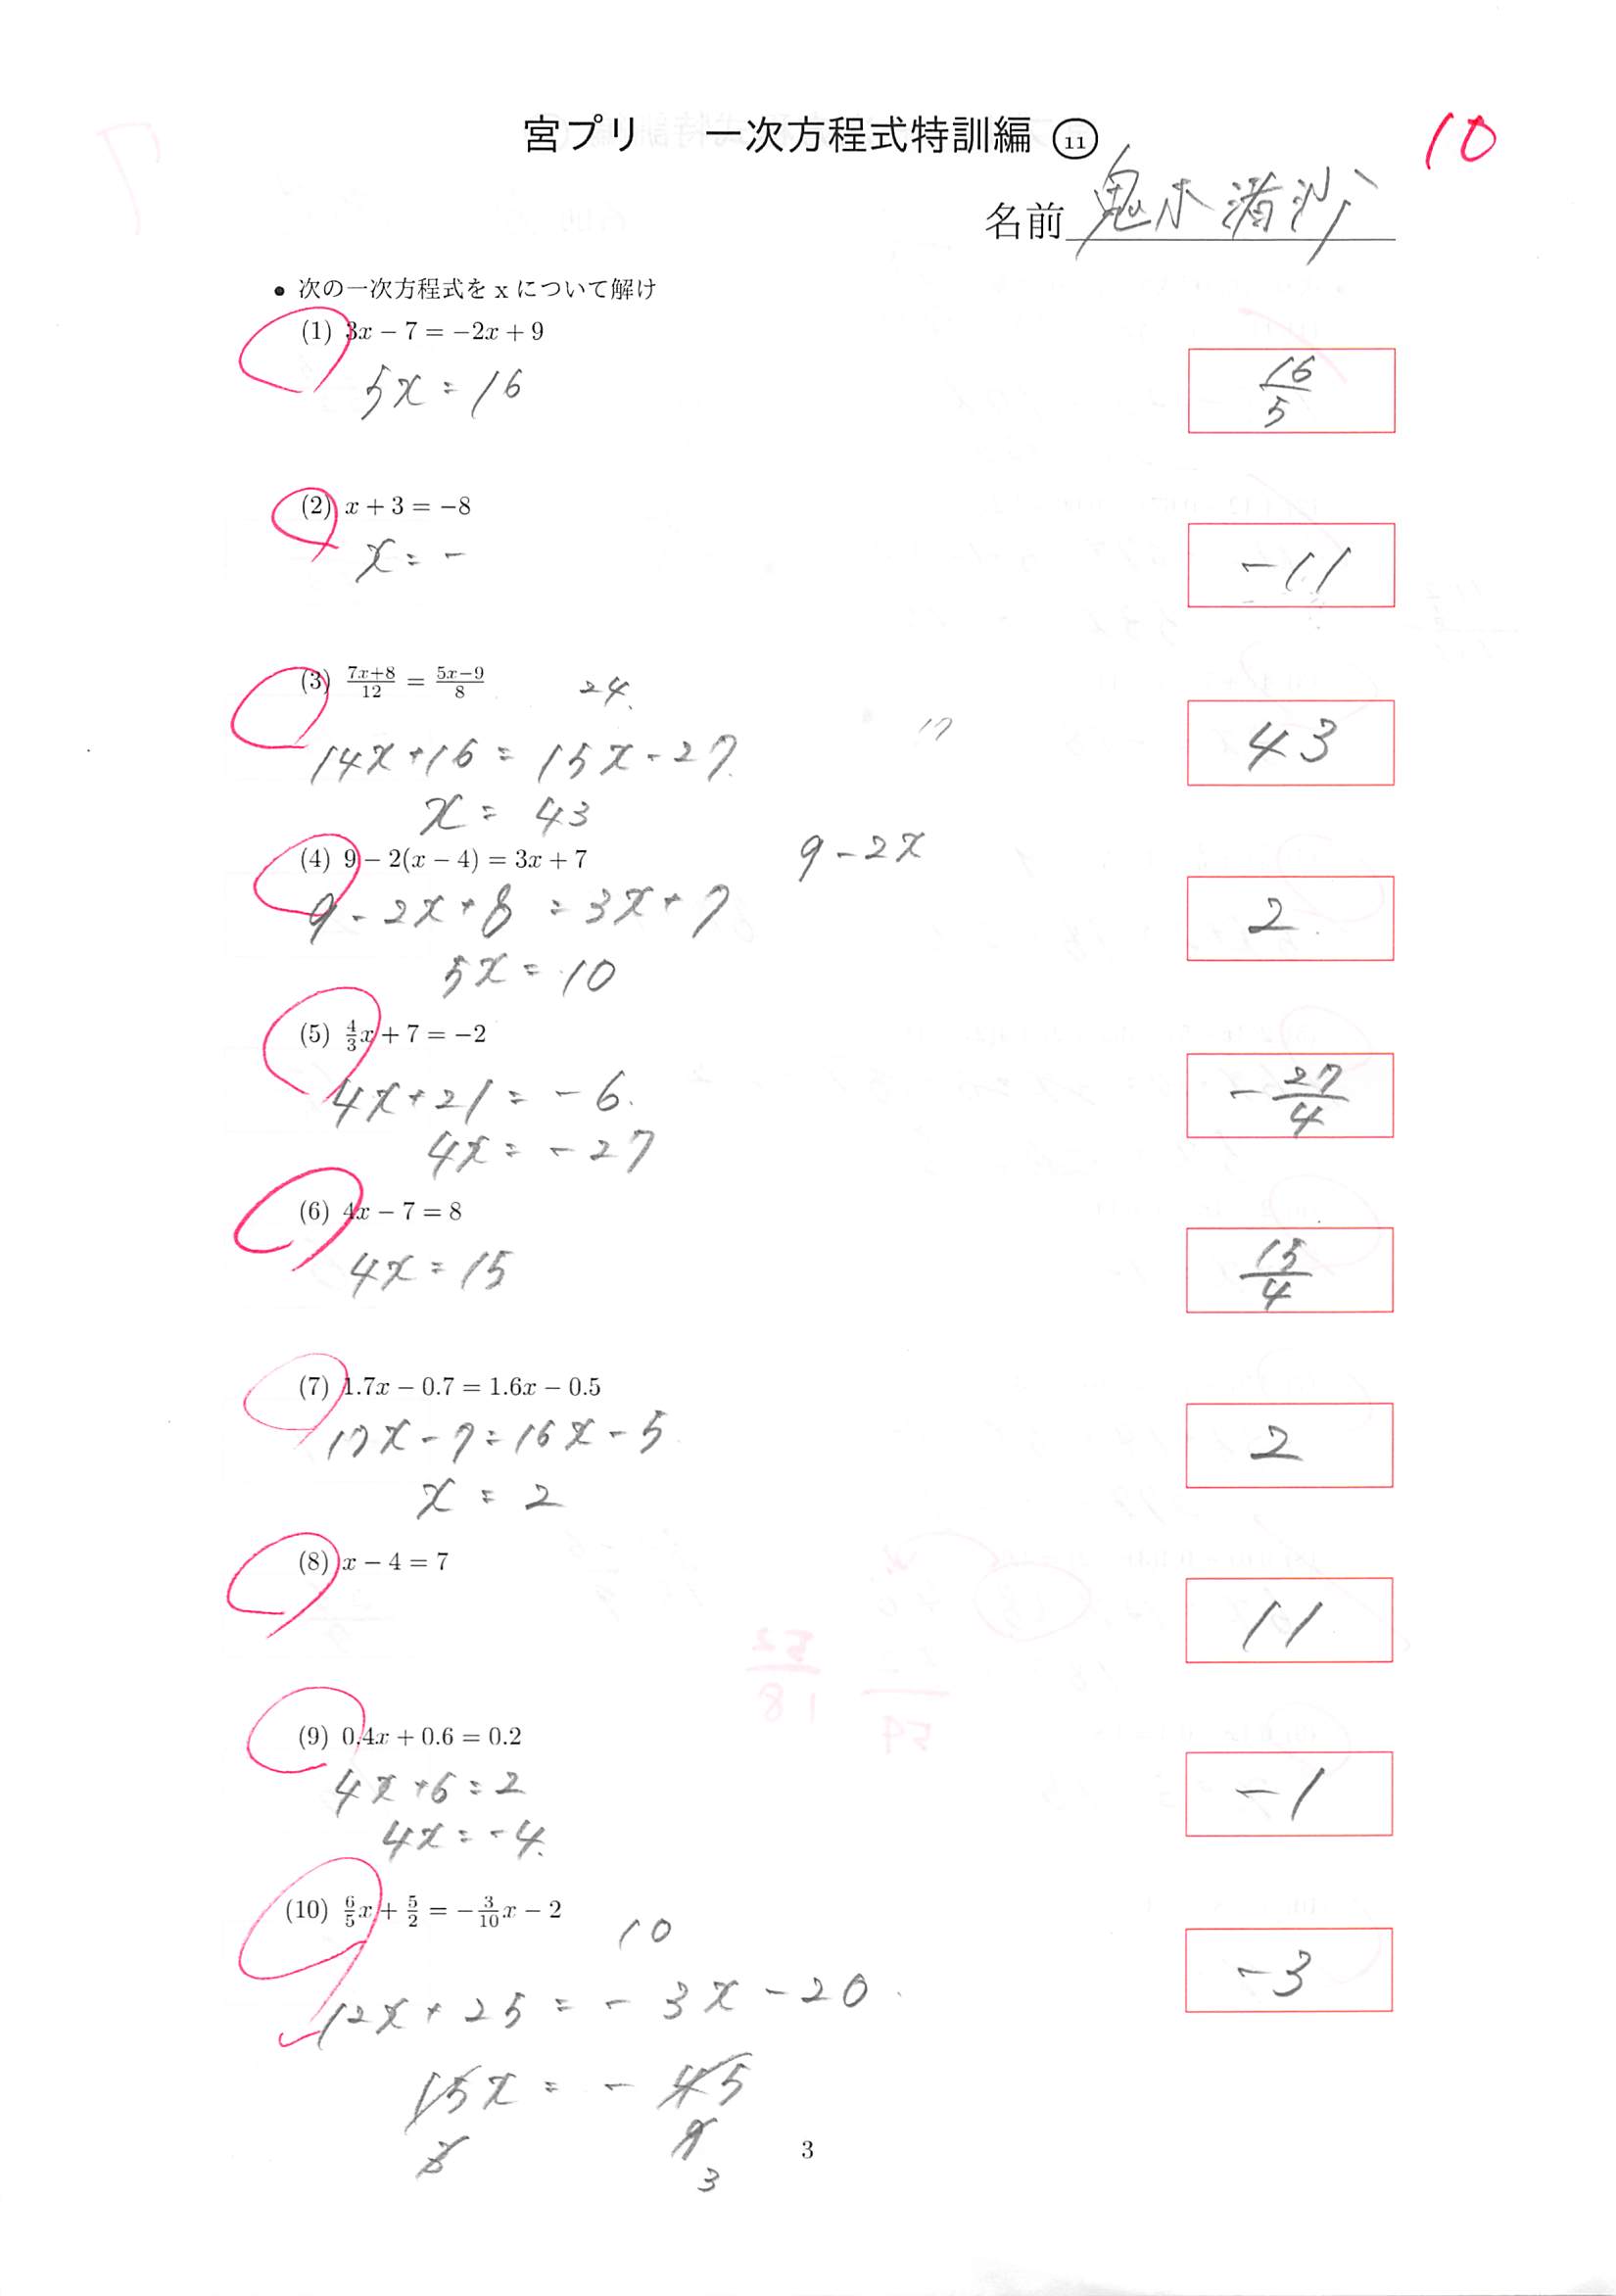 宮プリ 一次方程式特訓編 ⑪
10
名前 鬼木渚沙
• 次の一次方程式を x について解け
(1) 3x − 7 = −2x + 9
5x = 16
16/5
(2) x + 3 = −8
x = -
-11
(3) (7x+8)/12 = (5x−9)/8
24
14x+16 = 15x-27
17
x = 43
43
(4) 9 − 2(x − 4) = 3x + 7
9-2x
9-2x+8 = 3x+7
5x = 10
2
(5) 4/3 x + 7 = −2
4x+21 = -6
4x = -27
-27/4
(6) 4x − 7 = 8
4x = 15
15/4
(7) 1.7x − 0.7 = 1.6x − 0.5
17x-7=16x-5
x = 2
2
(8) x − 4 = 7
11
(9) 0.4x + 0.6 = 0.2
4x+6=2
4x=-4
-1
(10) 6/5 x + 5/2 = −3/10 x − 2
10
12x+25 = -3x-20
15x = -45
3 9
3
-3
3